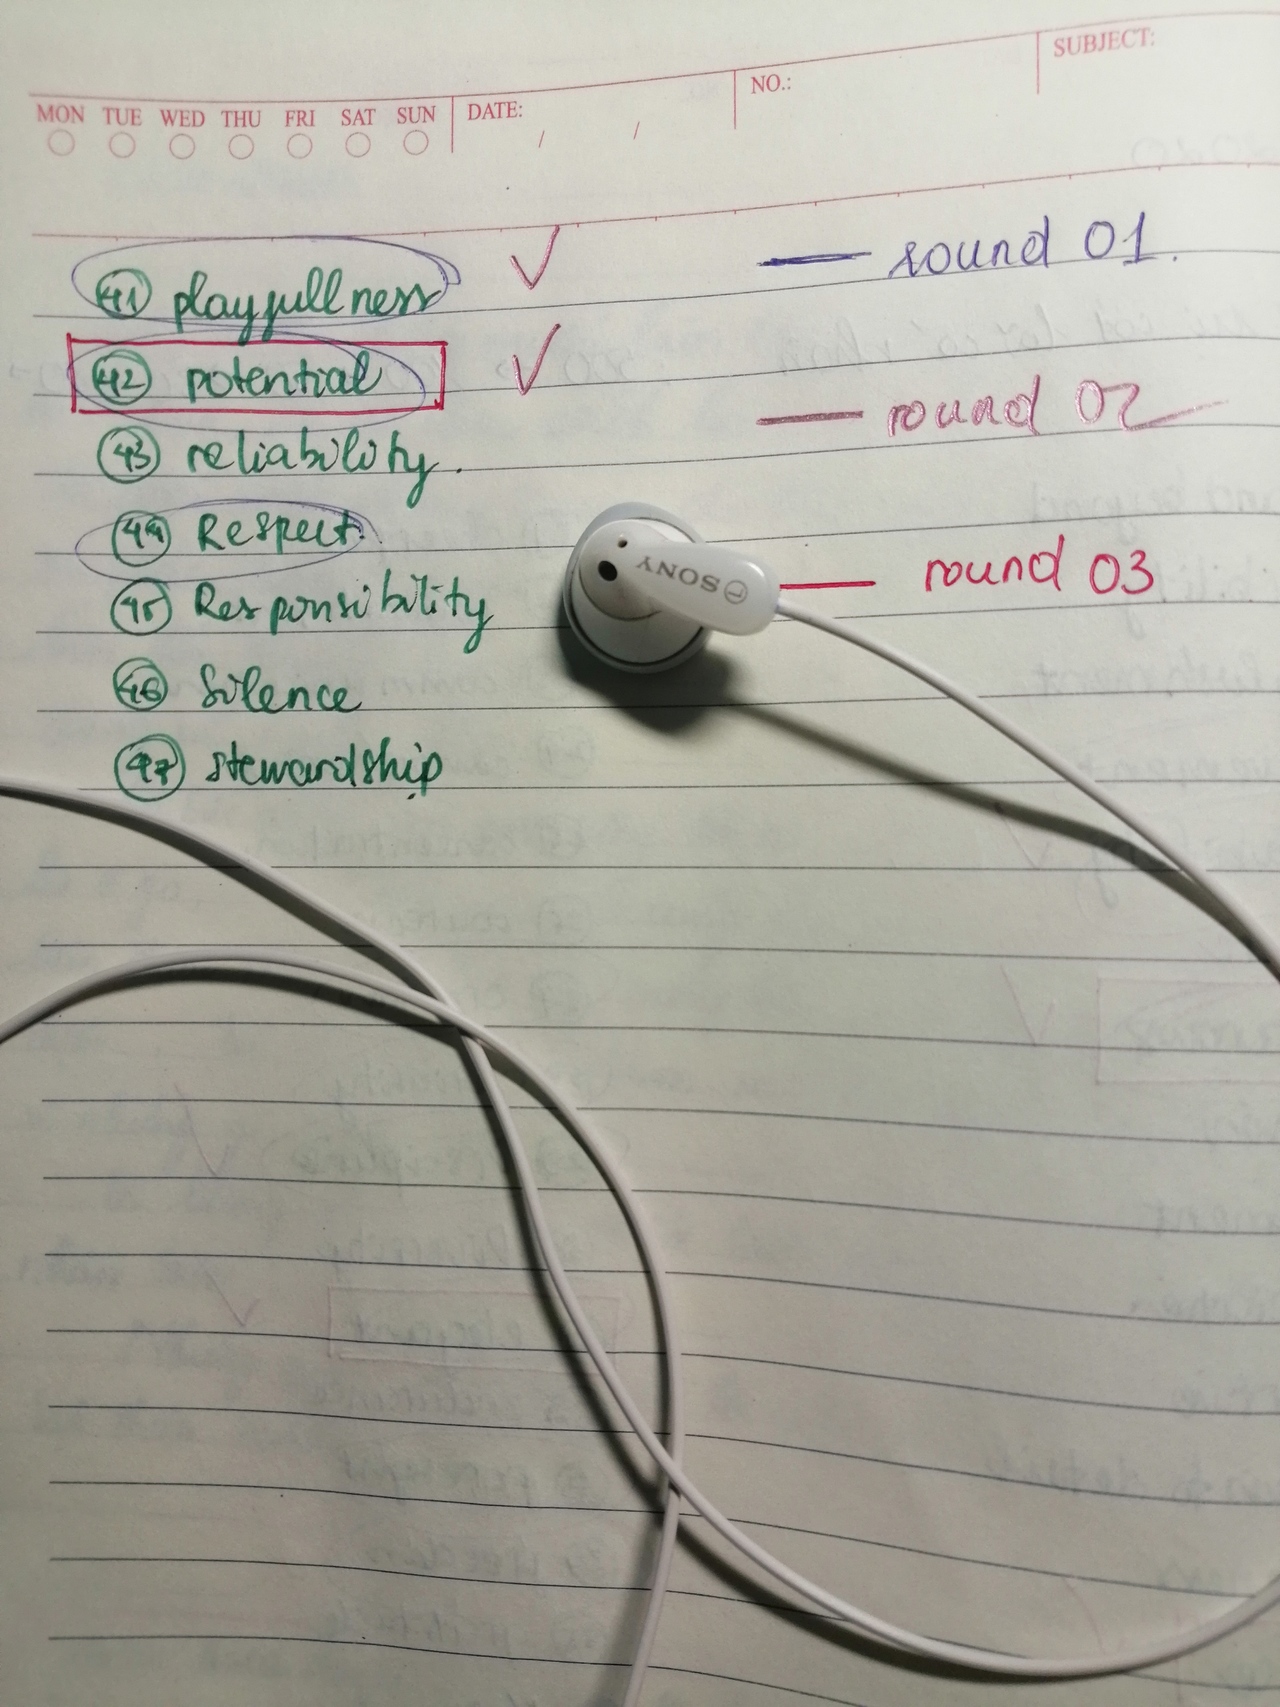 MON TUE WED THU FRI SAT SUN DATE: / / NO.: SUBJECT:
41 playfullness
42 potential
43 reliability.
44 Respect
45 Responsibility
46 Silence
47 stewardship
round 01.
round 02
round 03
SONY